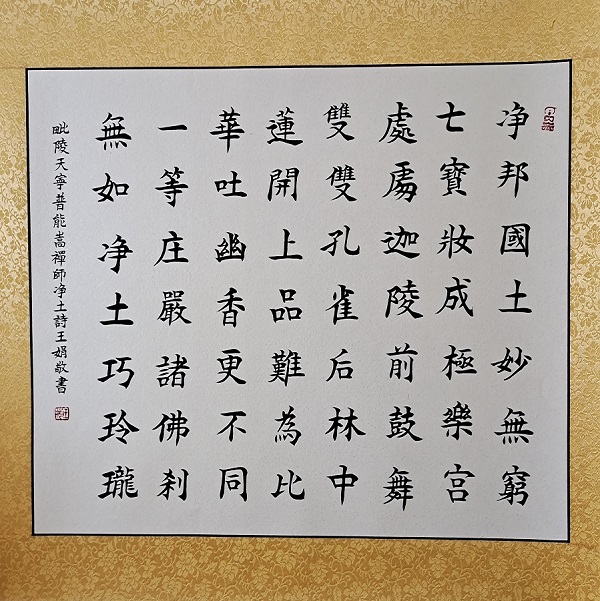 净邦國土妙無窮
七寳妝成極樂宫
處處迦陵前鼓舞
雙雙孔雀后林中
蓮開上品難為比
華吐幽香更不同
一等庄嚴諸佛刹
無如净土巧玲瓏
毗陵天寧普能嵩禪師净土詩王娟敬書